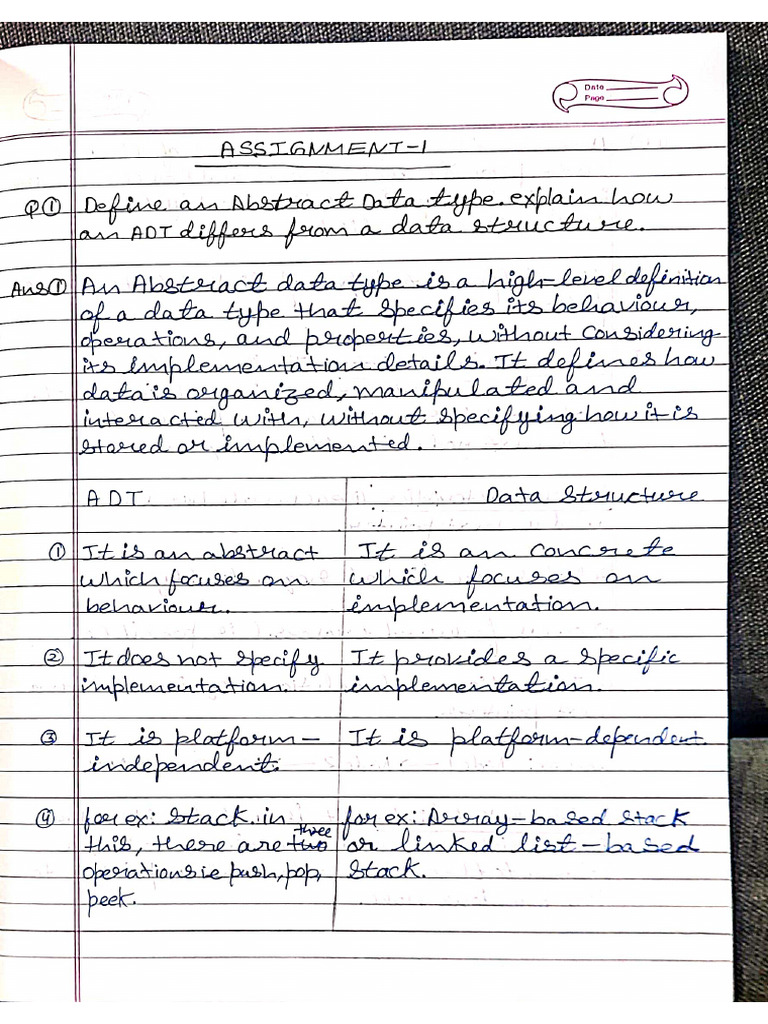 Date
Page
ASSIGNMENT-1
Q① Define an Abstract Data type. explain how
an ADT differs from a data structure.
Ans① An Abstract data type is a high-level definition
of a data type that specifies its behaviour,
operations, and properties, without considering
its implementation details. It defines how
data is organized, manipulated and
interacted with, without specifying how it is
stored or implemented.
ADT Data Structure
① It is an abstract It is an concrete
which focuses on which focuses on
behaviour. implementation.
② It does not specify It provides a specific
implementation. implementation.
③ It is platform- It is platform-dependent
independent.
④ for ex: Stack. in for ex: Array-based stack
three
this, there are two or linked list-based
operations ie push, pop, stack.
peek.